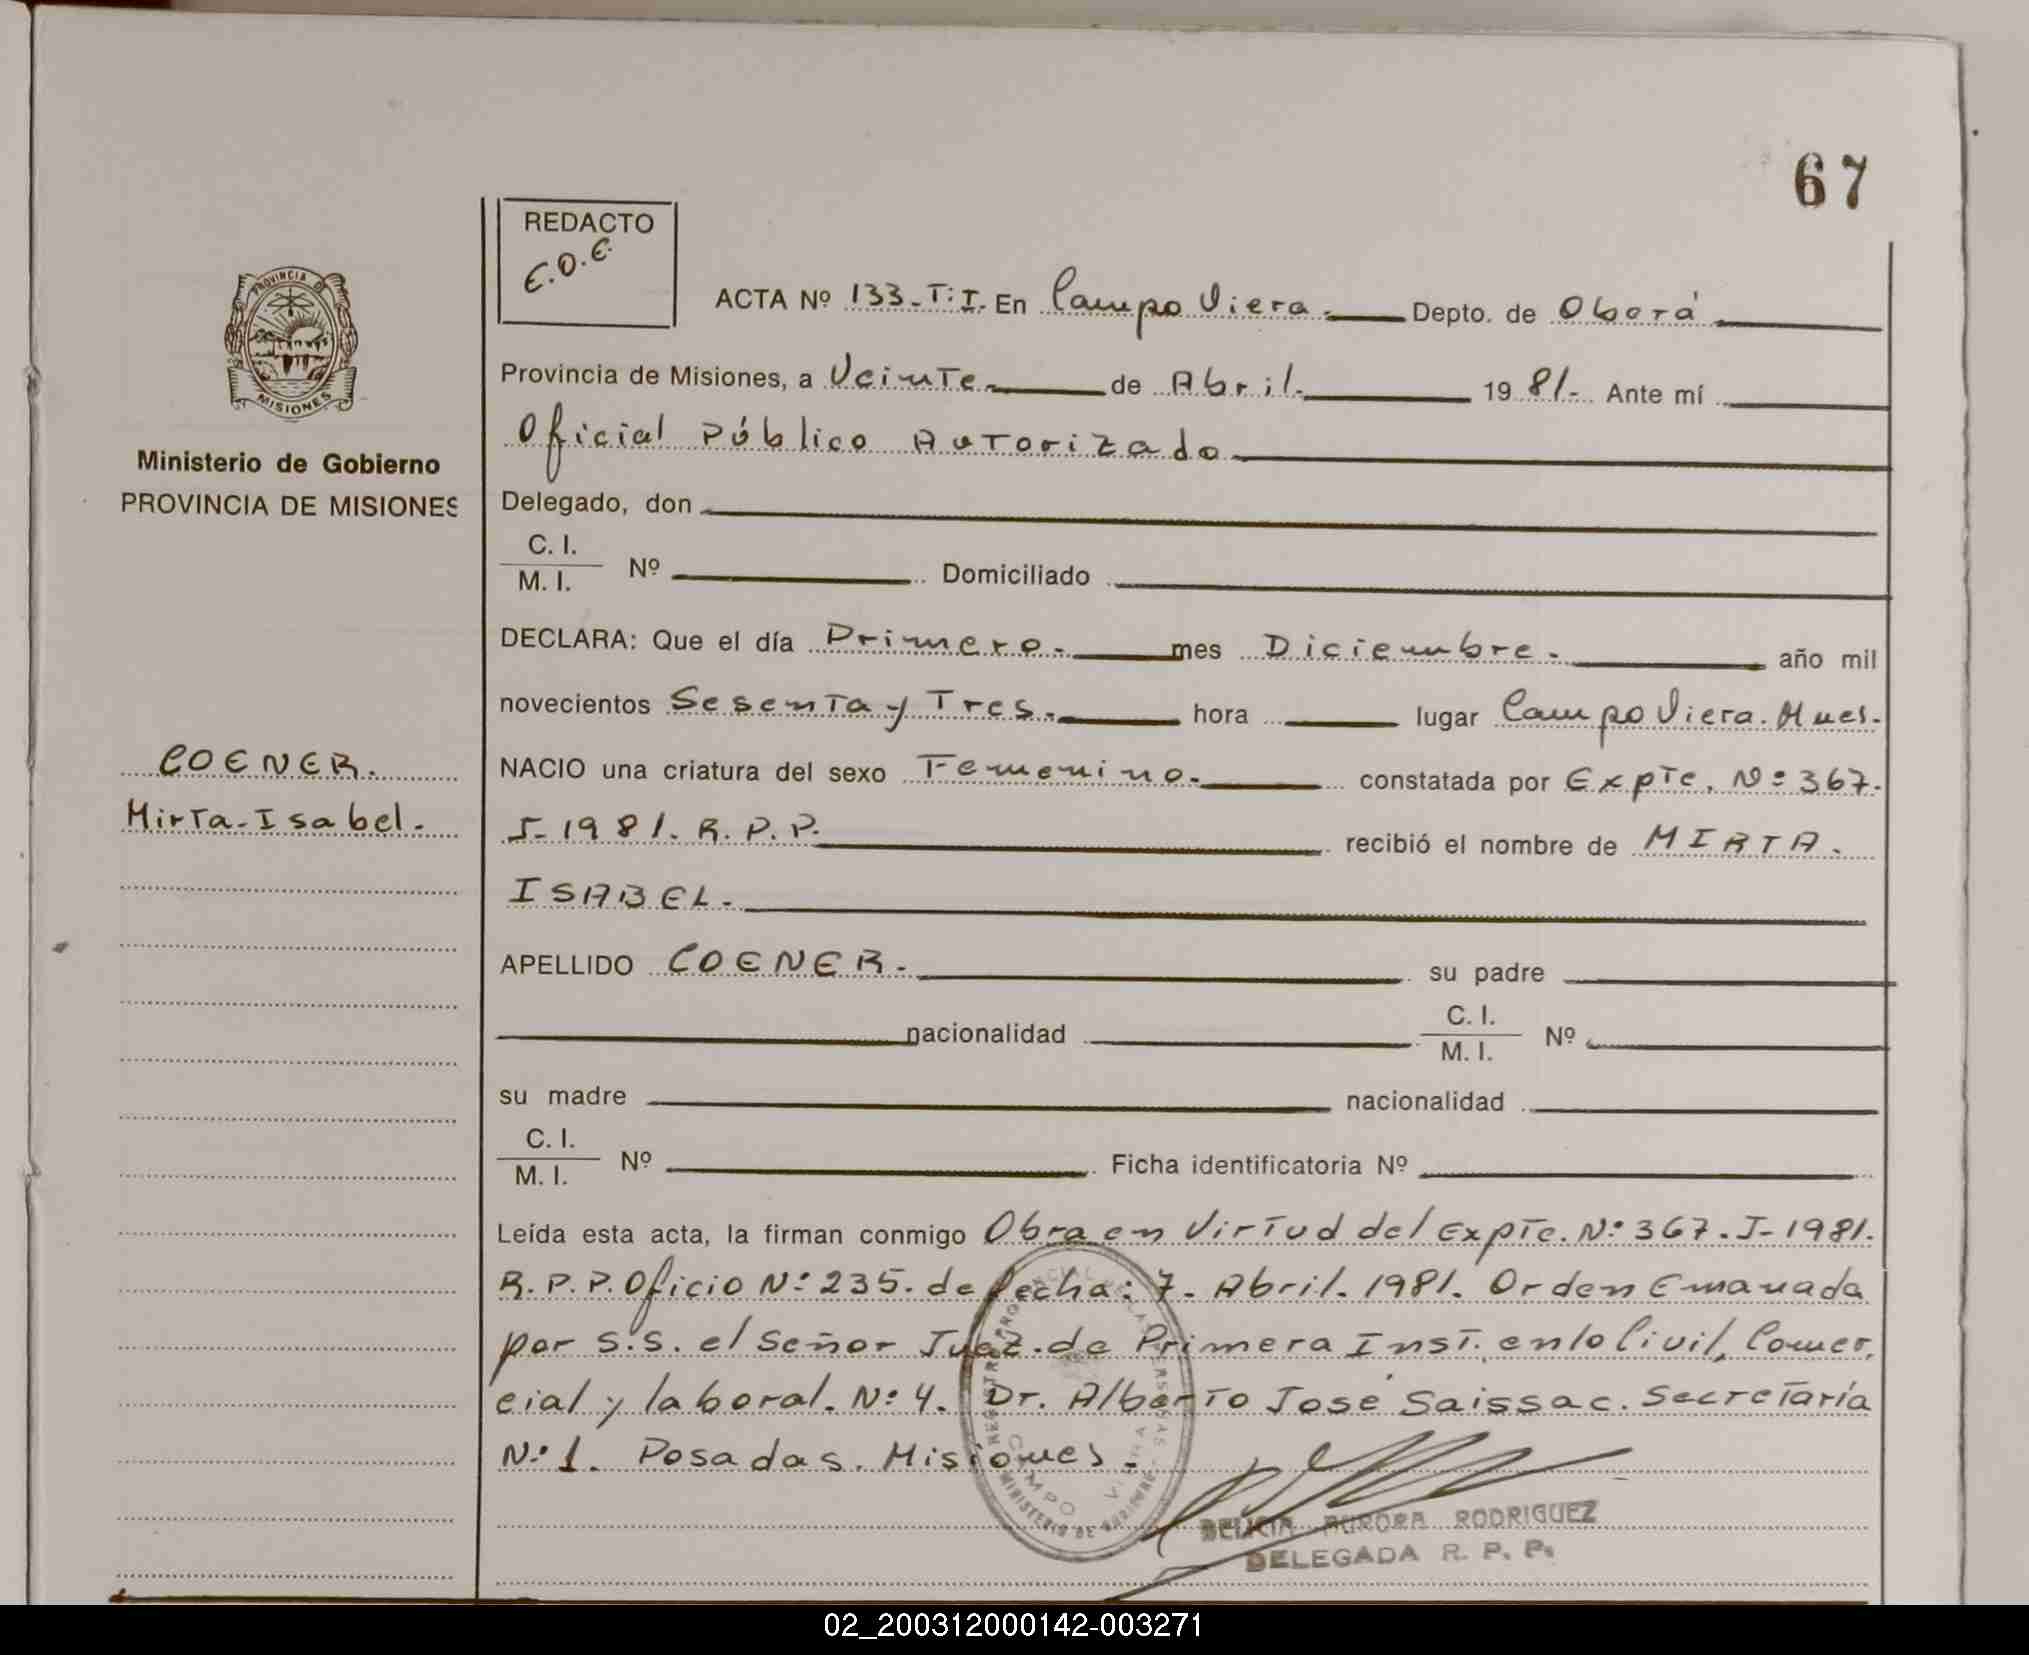 67
REDACTO
E.O.E.
ACTA Nº 133-T:I. En Campo Viera.- Depto. de Oberá
PROVINCIA DE
MISIONES
Provincia de Misiones, a Veinte.- de Abril.- 1981.- Ante mí
Oficial Público Autorizado
Ministerio de Gobierno
PROVINCIA DE MISIONES
Delegado, don
C. I.
M. I. Nº Domiciliado
DECLARA: Que el día Primero.- mes Diciembre.- año mil
novecientos Sesenta y Tres.- hora lugar Campo Viera. Mnes.
COENER.
NACIO una criatura del sexo Femenino.- constatada por Expte. Nº 367.
Mirta-Isabel.
J-1981. R.P.P. recibió el nombre de MIRTA.
ISABEL.-
APELLIDO COENER.- su padre
nacionalidad C. I.
M. I. Nº
su madre nacionalidad
C. I.
M. I. Nº Ficha identificatoria Nº
Leída esta acta, la firman conmigo Obra en Virtud del Expte. Nº 367.J-1981.
R.P.P. Oficio Nº 235. de fecha: 7. Abril. 1981. Orden Emanada
por S.S. el Señor Juez. de Primera Inst. en lo Civil, Comer,
cial y laboral. Nº 4. Dr. Alberto José Saissac. Secretaría
Nº 1. Posadas. Misiones.-
CAMPO VIERA
DELICIA AURORA RODRIGUEZ
DELEGADA R. P. P.
02_200312000142-003271